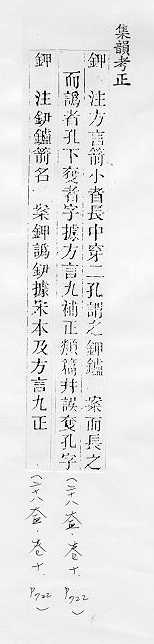 集韻考正
鉀　注方言箭小者長中穿二孔謂之鉀鑪　案而長之
而譌者孔下奪者字據方言九補正類篇幷誤奪孔字
(二十八盍．卷十．P722)
鉀　注釾鑪箭名　案鉀譌釾據宋本及方言九正
(二十八盍．卷十．P722)